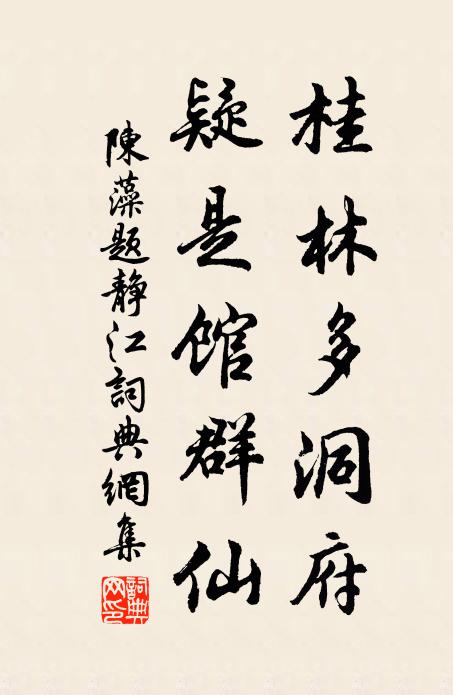 桂林多洞府
疑是馆群仙
陳藻题静江詞典網集
詞典网印